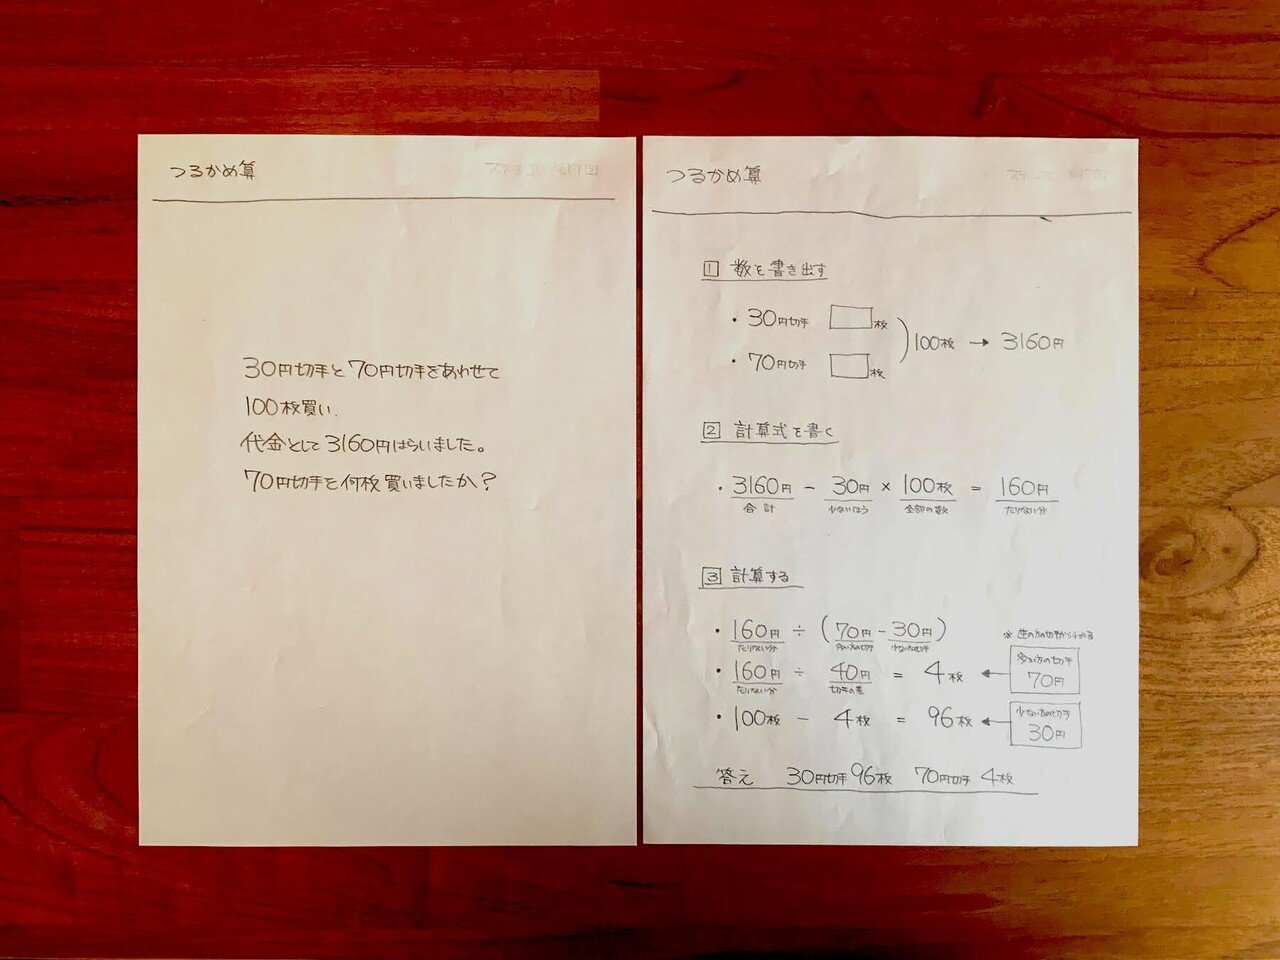 つるかめ算
30円切手と70円切手をあわせて
100枚買い、
代金として3160円はらいました。
70円切手を何枚買いましたか?
つるかめ算
1 数を書き出す
・30円切手 枚
・70円切手 枚
100枚 → 3160円
2 計算式を書く
・3160円 - 30円 × 100枚 = 160円
合計 少ないほう 全部の数 たりない分
3 計算する
・160円 ÷ (70円-30円)
たりない分 多い方の切手 少ない方の切手
※ 逆の方の切手からわかる
・160円 ÷ 40円 = 4枚 ←
たりない分 切手の差
多い方の切手
70円
・100枚 - 4枚 = 96枚 ←
少ない方の切手
30円
答え 30円切手 96枚 70円切手 4枚